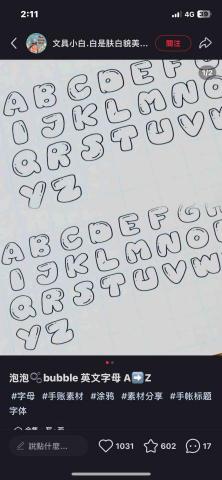 2:11
4G
文具小白.白是肤白貌美...
關注
1/2
A B C D E F G
I J K L M N O
Q R S T U V W
Y Z
A B C D E F G H
I J K L M N O
Q R S T U V W
Y Z
泡泡🫧bubble 英文字母 A➡️Z
#字母 #手账素材 #涂鸦 #素材分享 #手帐标题
字体
說點什麼...
1031
602
17